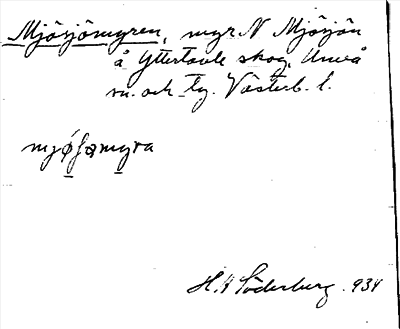 Mjösjömyren, myr N Mjösjön
å Yttertavle skog, Umeå
sn. och tg. Västerb. l.
mjǿʃømyra
H. W Söderberg 1934